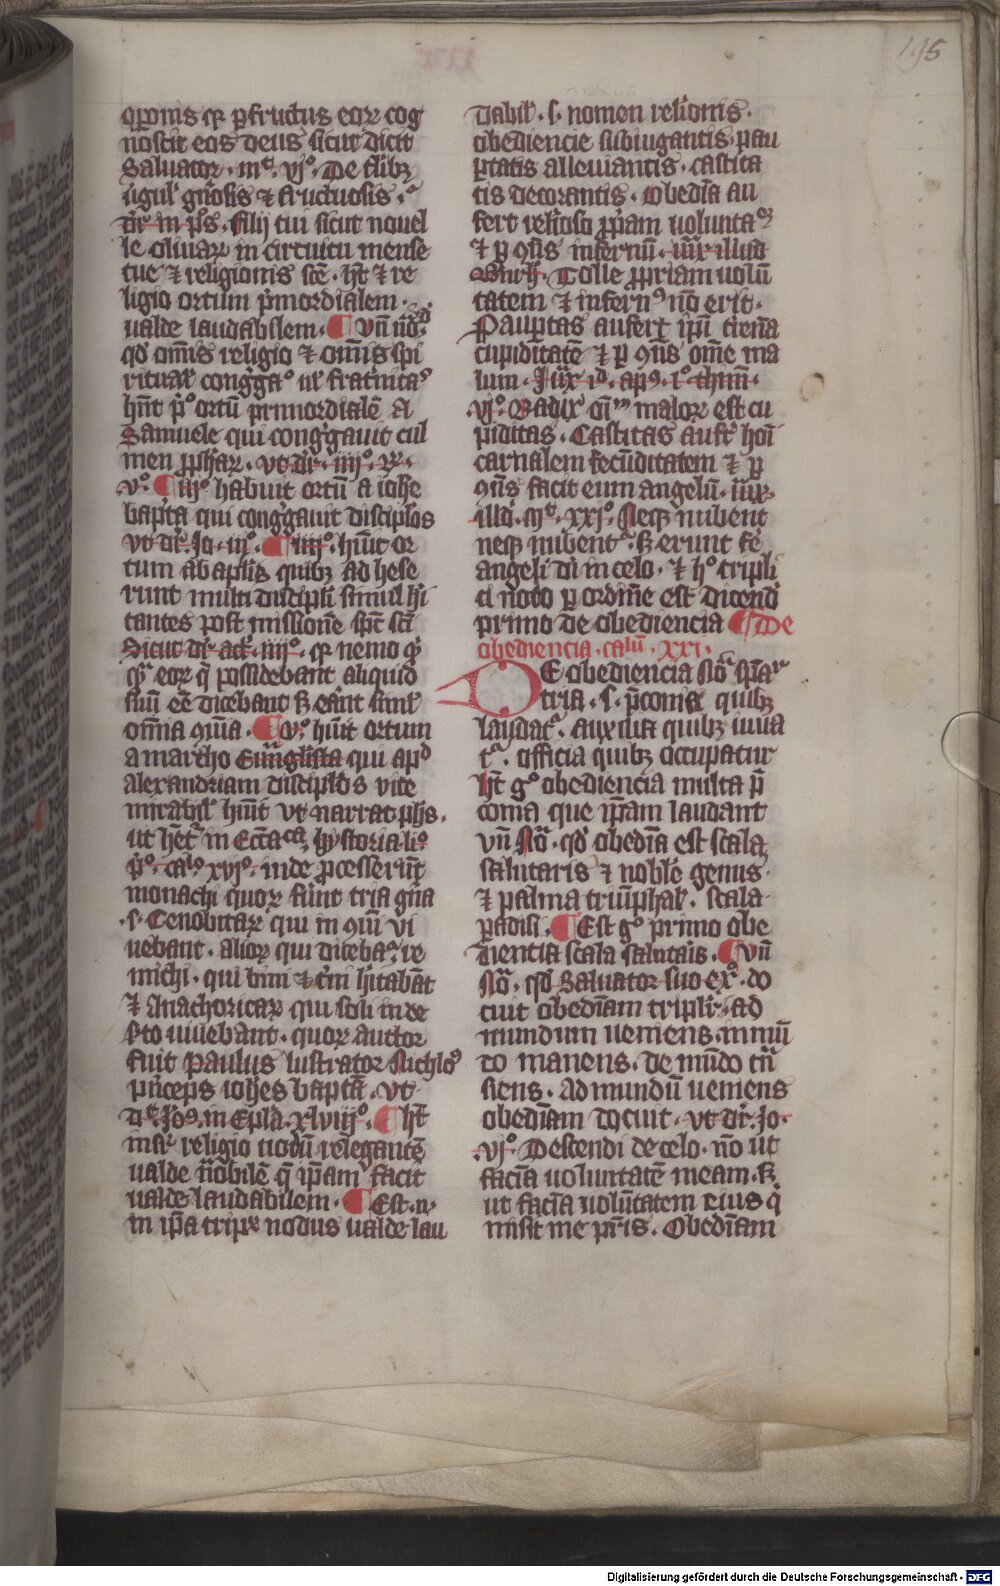 195
operis qr per fructus eorum cog
noscit eos deus sicut dicit
Saluator. mt. vijo. De talibz
uigul' gnosis et fructuosis.
dr in ps. filij tui sicut nouel
le oliuarum in circuitu mense
tue et religionis scē. ht et re
ligio ortum primordialem.
ualde laudabilem. ¶ Vn nd
qd omis religio et omis spi
ritual' congga° ul' fratnita
hnt p° ortū primordialē A
Samuele qui conggauit cul
men pphar. vt dr. iiij°. R.
.v°. ¶ iij° habuit ortū a iohe
bapta qui conggauit discipulos
vt dr. Jo. iij°. ¶ iiij°. huit or
tum ab aplis quibz ad hese
runt multi discipli simul hi
tantes post missionē spc sci
Sicut dr. act. iiij°. qr nemo
eorum q possidebant aliquid
suū eē dicebant sz erāt simul
omia gmia. ¶ v°. huit ortum
a martho Euuglista qui apd
alexandriam discipulos vite
mirabil' huit vt narrat phs.
ut het in Ecctaca hystoria li°
p°. ca° xvj°. inde processerūt
monachi quorum sunt tria gna
.s. Cenobitarum qui in gmi vi
uebant. alior qui diceba re
michi. qui bini et trni hitabāt
et Anachoricar qui soli in de
sto uiuebant. quorum auctor
fuit Paulus lustrator Nichlo
princeps iohes bapta. vt
dt Jos. in Epla. xlviij°. ¶ ht
insr religio nodū relegantē
ualde nobilē q ipam facit
ualde laudabilem. ¶ Est. n.
in ipa triplx nodus ualde lau
dabil'. s. nomen religionis.
obediencie subiugantis. pau
ptatis alleuiantis. castita
tis decorantis. Obedia au
fert religioso ppam uolunta
et p gns infernū. iux illud
Bnrh. Tolle ppriam uolū
tatem et infernus nō erit.
Paupertas aufert ipi terrēa
cupiditatē et p gns ome ma
lum. Jux id. aps. i° thim.
vj°. Radix oim malorum est cu
piditas. Castitas aufert hoi
carnalem fecūditatem et p
gns facit eum angelū. iux
illd. mt. xxij°. Neqz nubent
neqz nubent. sz erunt sic
angeli dei in celo. et h° tripli
ci nodo p ordinē est dicend
primo de obediencia ¶ De
obediencia. calm. xxi.
DE obediencia no splar
tria. s. pconia quibz
laudat. auxilia quibz iuua
t. officia quibz occupatur
Ht g° obediencia multa p
conia que ipam laudant
vn No. qd obedia est scala
salutaris et nobile genus.
et palma triūphal'. scala
padisi. ¶ Est g° primo obe
diencia scala salutaris. ¶ Vn
No. qd Saluator suo ex°. do
cuit obediam triplr. ad
mundum ueniens. in mū
do manens. de mūdo trā
siens. Ad mundū ueniens
obediam docuit. vt dr. Jo.
.vj°. Descendi de celo. nō ut
facia uoluntatē meam. sz
ut facia uolūtatem eius q
misit me pris. Obediam
Digitalisierung gefördert durch die Deutsche Forschungsgemeinschaft - DFG